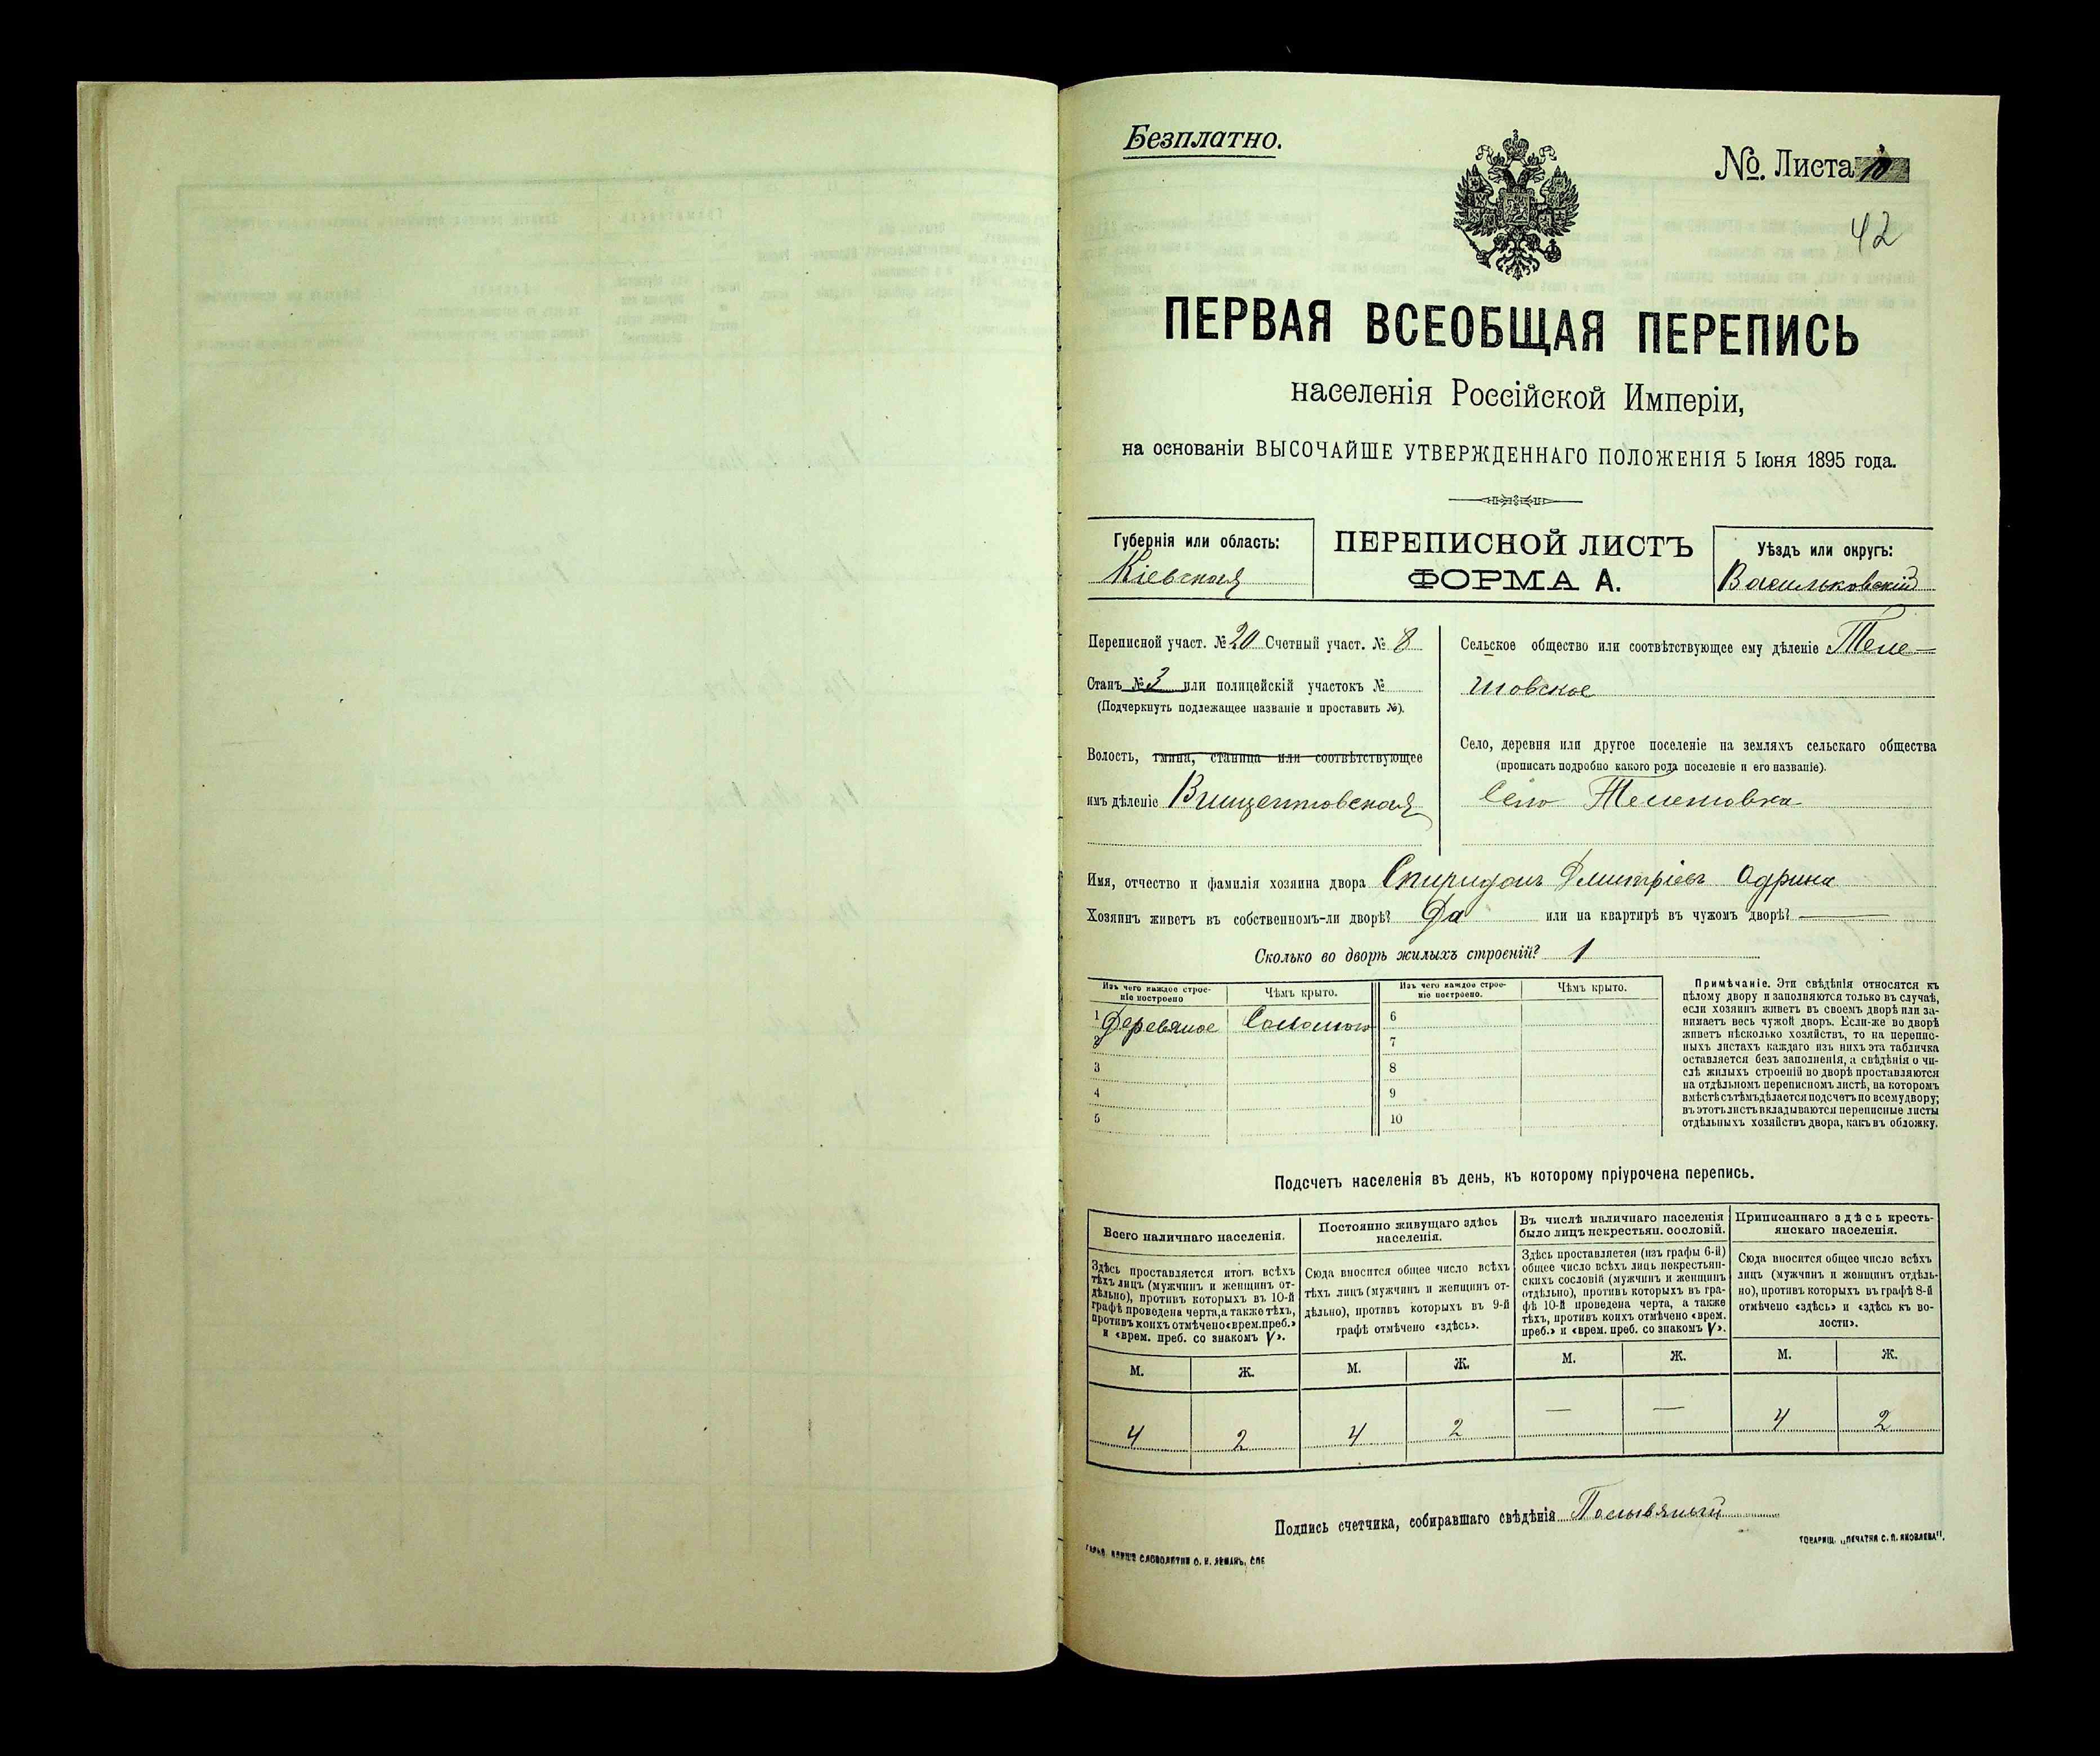 Безплатно.
№. Листа 10
42
ПЕРВАЯ ВСЕОБЩАЯ ПЕРЕПИСЬ
населенія Россійской Имперіи,
на основаніи ВЫСОЧАЙШЕ УТВЕРЖДЕННАГО ПОЛОЖЕНІЯ 5 Іюня 1895 года.
Губернія или область:
Кіевская
ПЕРЕПИСНОЙ ЛИСТЪ
ФОРМА А.
Уѣздъ или округъ:
Васильковскій
Переписной участ. № 20 Счетный участ. № 8
Станъ № 3 или полицейскій участокъ №
(Подчеркнуть подлежащее названіе и проставить №).
Волость, гмина, станица или соотвѣтствующее
имъ дѣленіе Винцентовская
Сельское общество или соотвѣтствующее ему дѣленіе Теле-
шовское
Село, деревня или другое поселеніе на земляхъ сельскаго общества
(прописать подробно какого рода поселеніе и его названіе).
Село Телешовка
Имя, отчество и фамилія хозяина двора Спиридонъ Дмитріевъ Одрина
Хозяинъ живетъ въ собственномъ-ли дворѣ? Да или на квартирѣ въ чужомъ дворѣ?
Сколько во дворѣ жилыхъ строеній? 1
Изъ чего каждое строе-
ніе построено
Чѣмъ крыто.
Изъ чего каждое строе-
ніе построено.
Чѣмъ крыто.
1 Деревяное Соломою 6
2 7
3 8
4 9
5 10
Примѣчаніе. Эти свѣдѣнія относятся къ
цѣлому двору и заполняются только въ случаѣ,
если хозяинъ живетъ въ своемъ дворѣ или за-
нимаетъ весь чужой дворъ. Если-же во дворѣ
живетъ нѣсколько хозяйствъ, то на перепис-
ныхъ листахъ каждаго изъ нихъ эта табличка
оставляется безъ заполненія, а свѣдѣнія о чи-
слѣ жилыхъ строеній во дворѣ проставляются
на отдѣльномъ переписномъ листѣ, на которомъ
вмѣстѣ съ тѣмъ дѣлается подсчетъ по всему двору;
въ этотъ листъ вкладываются переписные листы
отдѣльныхъ хозяйствъ двора, какъ въ обложку.
Подсчетъ населенія въ день, къ которому пріурочена перепись.
Всего наличнаго населенія.
Здѣсь проставляется итогъ всѣхъ
тѣхъ лицъ (мужчинъ и женщинъ от-
дѣльно), противъ которыхъ въ 10-й
графѣ проведена черта, а также тѣхъ,
противъ коихъ отмѣчено «врем. преб.»
и «врем. преб. со знакомъ V».
Постоянно живущаго здѣсь
населенія.
Сюда вносится общее число всѣхъ
тѣхъ лицъ (мужчинъ и женщинъ от-
дѣльно), противъ которыхъ въ 9-й
графѣ отмѣчено «здѣсь».
Въ числѣ наличнаго населенія
было лицъ некрестьян. сословій.
Здѣсь проставляется (изъ графы 6-й)
общее число всѣхъ лицъ некрестьян-
скихъ сословій (мужчинъ и женщинъ
отдѣльно), противъ которыхъ въ гра-
фѣ 10-й проведена черта, а также
тѣхъ, противъ коихъ отмѣчено «врем.
преб.» и «врем. преб. со знакомъ V».
Приписаннаго здѣсь кресть-
янскаго населенія.
Сюда вносится общее число всѣхъ
лицъ (мужчинъ и женщинъ отдѣль-
но), противъ которыхъ въ графѣ 8-й
отмѣчено «здѣсь» и «здѣсь къ во-
лости».
М. Ж. М. Ж. М. Ж. М. Ж.
4 2 4 2 — — 4 2
Подпись счетчика, собиравшаго свѣдѣнія
СЛОВОЛИТНИ О. И. ЛЕМАНЪ, СПБ
ТОВАРИЩ. „ПЕЧАТНЯ С. П. ЯКОВЛЕВА".